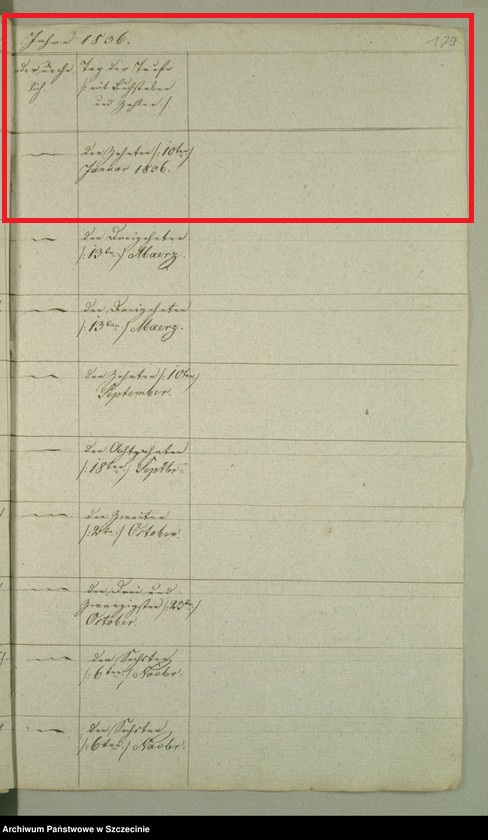 Jahre 1836.
179
der unehe
lich.
Tag der Taufe
/: mit Buchstaben
und Zahlen :/
den Zehnten /: 10ten :/
Januar 1836.
den Dreizehnten
/: 13ten :/ Maerz.
den Dreizehnten
/: 13ten :/ Maerz.
den Zehnten /: 10ten :/
September.
den Achtzehnten
/: 18ten :/ Septbr:
den Zweiten
/: 2ten :/ October.
den Drei und
Zwanzigsten /: 23ten :/
October.
den Sechsten
/: 6ten :/ Novbr.
den Sechsten
/: 6ten :/ Novbr.
Archiwum Państwowe w Szczecinie